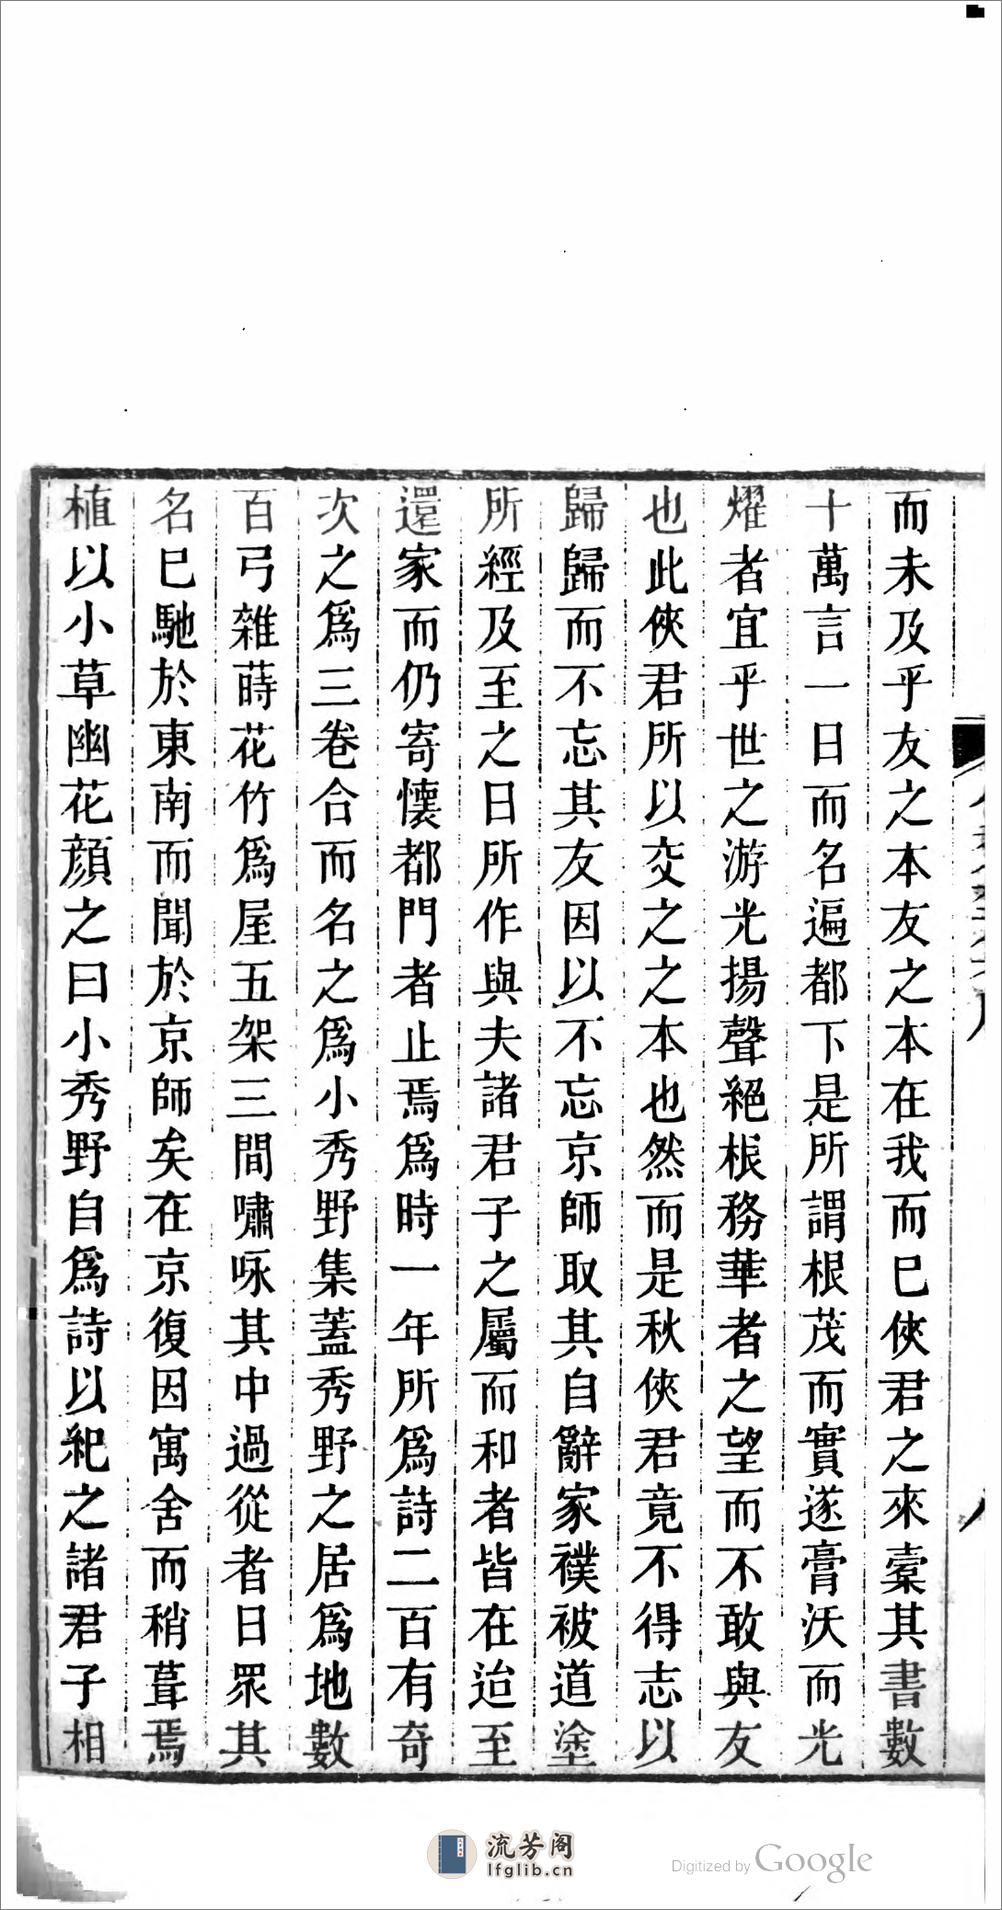 而未及乎友之本友之本在我而巳俠君之來橐其書數
十萬言一日而名遍都下是所謂根茂而實遂膏沃而光
燿者宜乎世之游光揚聲絕根務華者之望而不敢與友
也此俠君所以交之之本也然而是秋俠君竟不得志以
歸歸而不忘其友因以不忘京師取其自辭家襆被道塗
所經及至之日所作與夫諸君子之屬而和者皆在迨至
還家而仍寄懷都門者止焉爲時一年所爲詩二百有奇
次之爲三卷合而名之爲小秀野集蓋秀野之居爲地數
百弓雜蒔花竹爲屋五架三間嘯咏其中過從者日眾其
名巳馳於東南而聞於京師矣在京復因寓舍而稍葺焉
植以小草幽花顏之曰小秀野自爲詩以紀之諸君子相
流芳阁
lfglib.cn
Digitized by Google